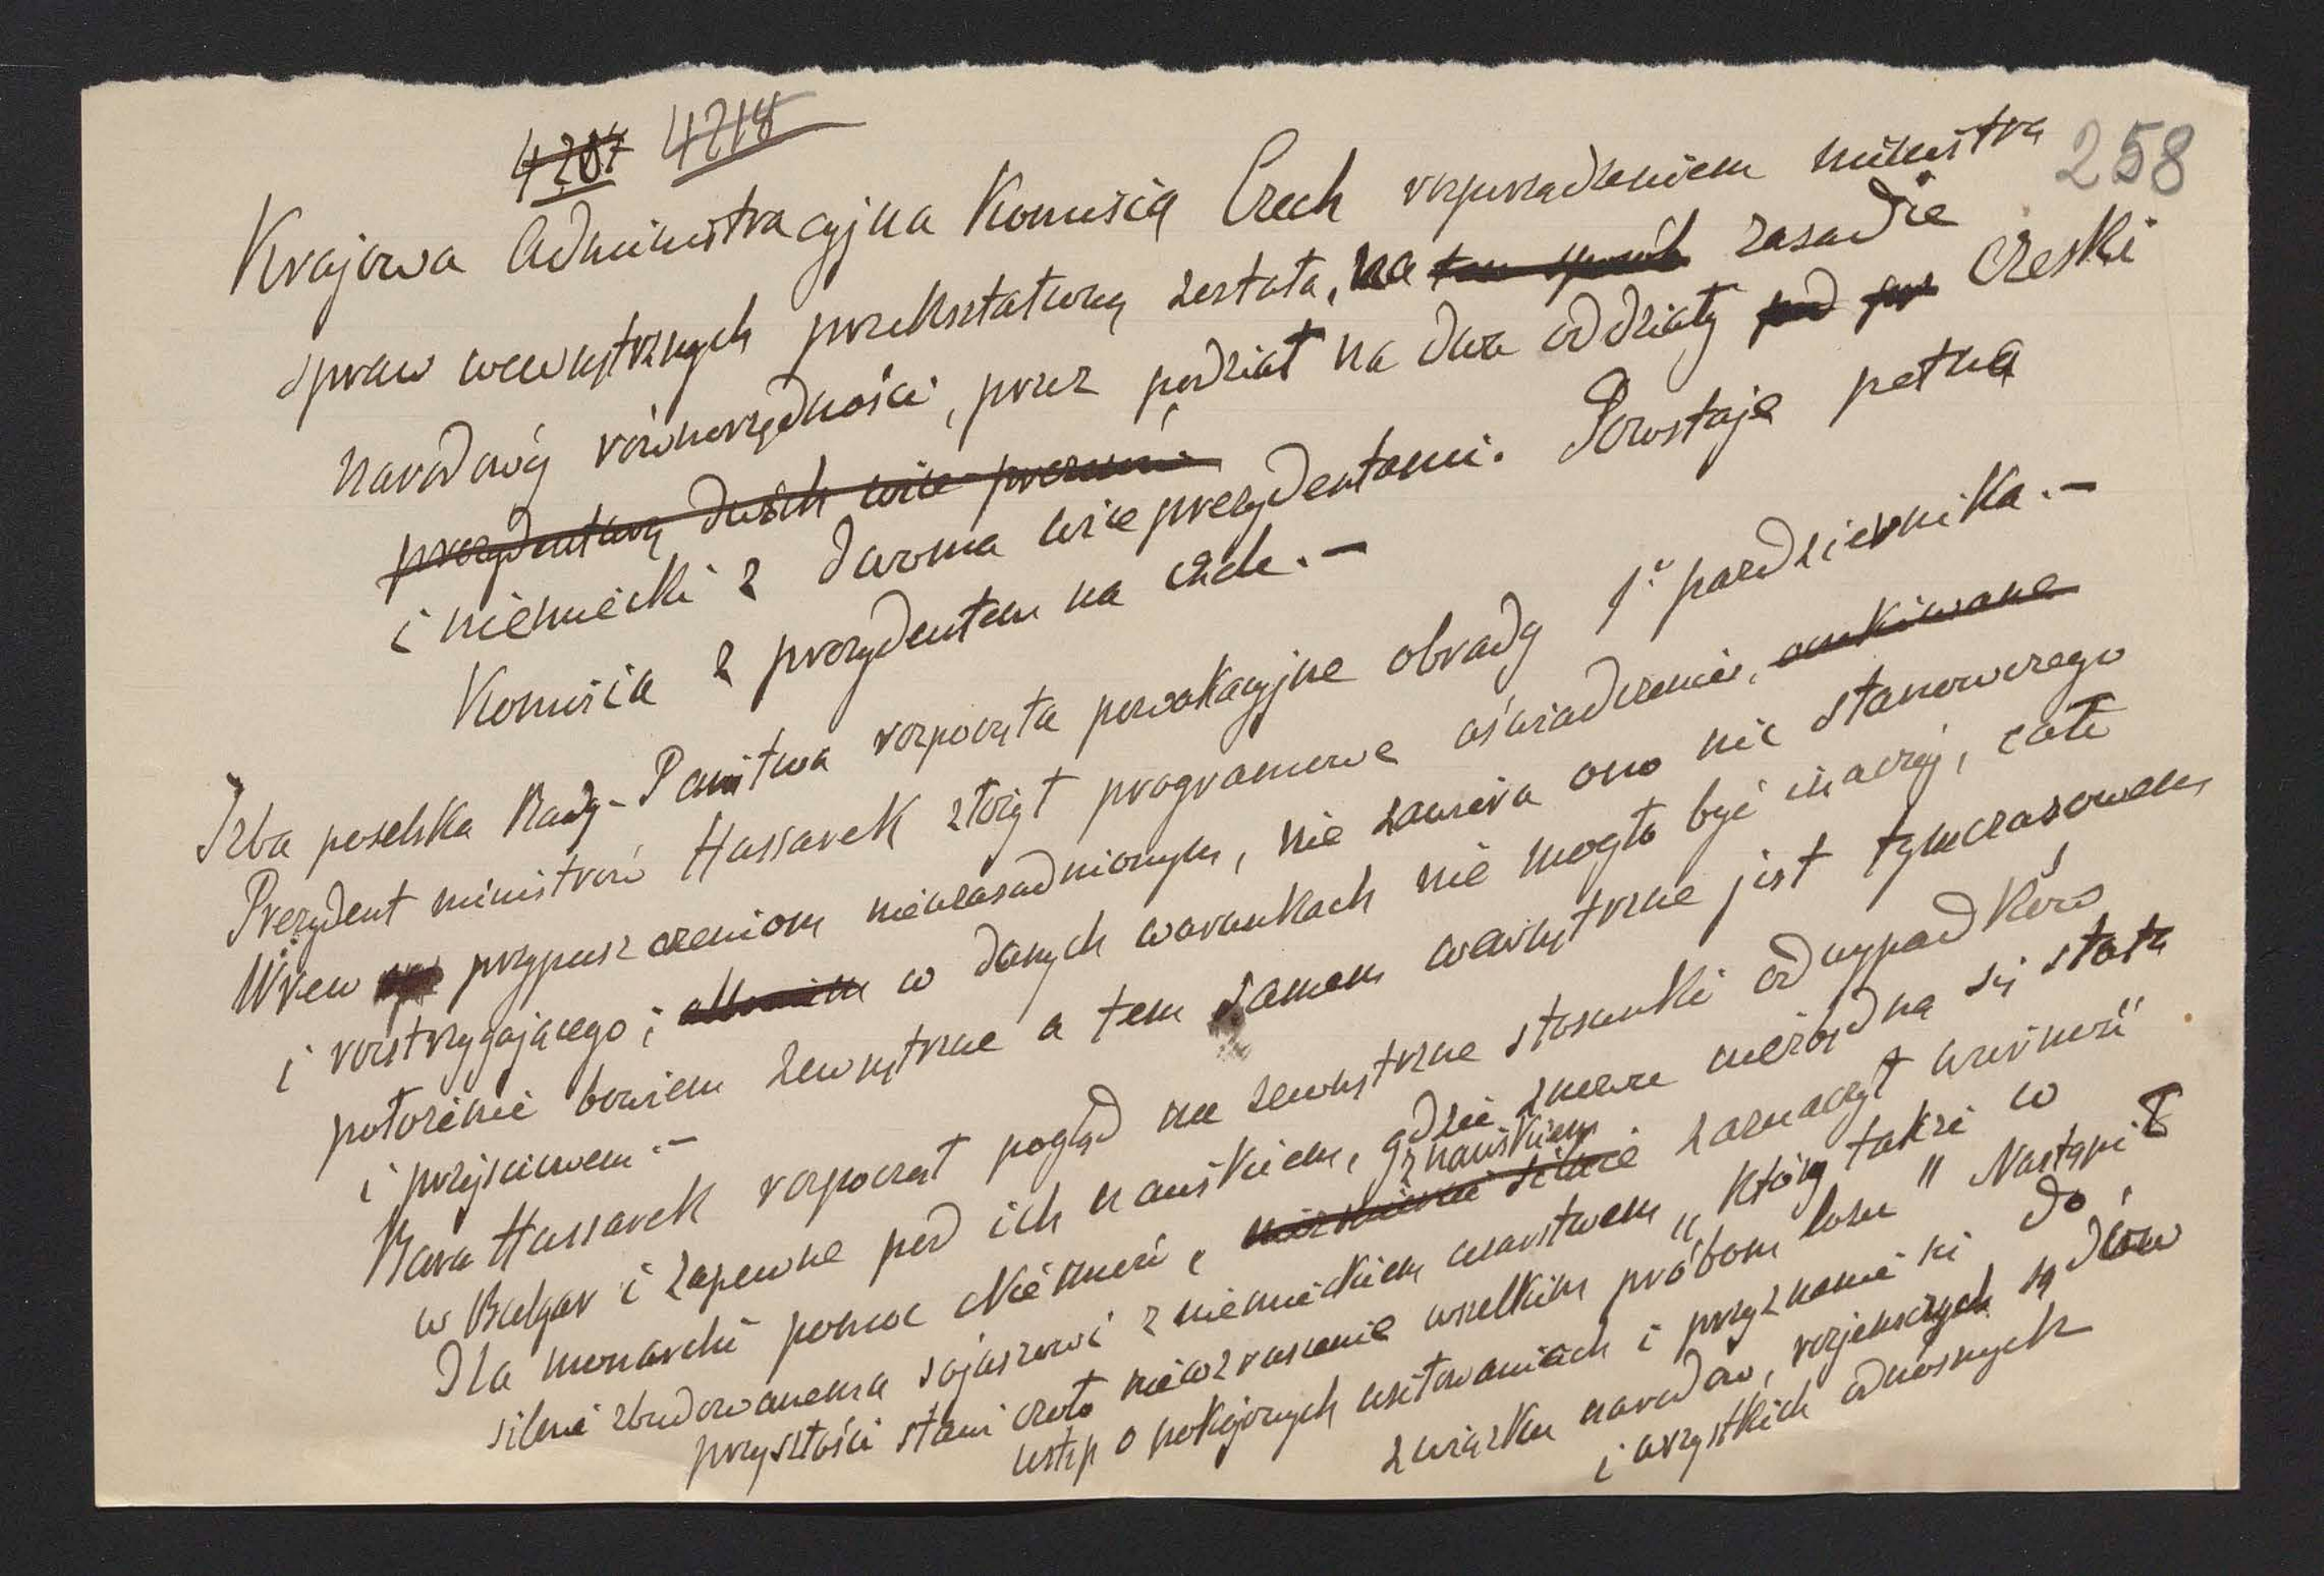 4287 4218
258
Krajowa Administracyjna Komisia Czech rozporządzeniem ministra
spraw wewnętrznych przekształconą została, na ten sposób zasadzie
narodowéj równorzędności, przez podział na dwa oddziały pod czeski
prezydenturą dwóch wice-prezesów
i niemiecki z dwoma wiceprezydentami. Powstaje pełna
Komisia z prezydentem na czele.-
Izba poselska Rady-Państwa rozpoczęła powakacyjne obrady 1° październnika.-
Prezydent ministrów Hussarek złożył programowe oświadczenie, oczekiwane
Wrew przypuszczeniom nieuzasadnionym, nie zawiera ono nic stanowczego
i rozstrzygającego; albowiem w danych warunkach nie mogło być inaczéj, całe
położenie bowiem zewnętrzne a tem samem wewnętrzne jest tymczasowem
i przejściowem.-
Baron Hussarek rozpoczął pogląd na zewnętrzne stosunki od wypadków
w Bulgar i zapewne pod ich naciskiem, gdzie znowu niezbędna się stała
z naciskiem
Dla monarchii pomoc Niemiec, niezmiernie silnie zaznaczył wierność
silnie zbudowanemu sojuszowi z niemieckiem cesarstwem „który także w
przyszłości stawi czoło niewzruszenie wszelkim próbom losu" Nastąpił
ustęp o pokojowych usiłowaniach i przyznanie się do
związku narodów, rozjemczych sądów
i wszystkich odnośnych